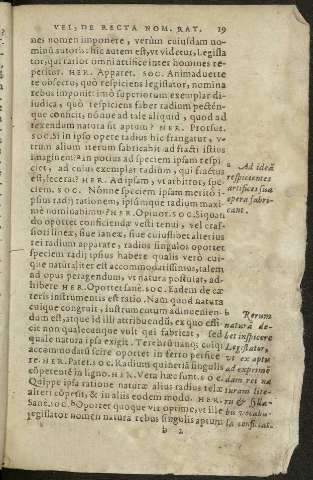 VEL, DE RECTA NOM. RAT. 19
nei nomen imponere, verùm cuiusdam no-
minũ autoris: hic autem est, vt videtur, Legisla
tor, qui rarior omni artifice inter homines re-
peritor. HER. Apparet. SOC. Animaduerte
te obsecro, quò respiciens legislator, nomina
rebus imponit: imò superiorum exemplar di-
iudica, quò respiciens faber radium pectén-
que conficit, nónne ad tale aliquid, quod ad
texendum natura sit aptum? HER. Prorsus.
SOC. Si in ipso opere radius hic frangatur, v-
trum alium iterum fabricabit ad fracti istius
imaginem? an potius ad speciem ipsam respi
ciet, ad cuius exemplar radium, qui fractus
est, fecerat? HER. Ad ipsam, vt arbitror, spe-
ciem. SOC. Nónne speciem ipsam meritò i-
psius radij rationem, ipsúmque radium maxi-
mè nominabimus? HER. Opinor. SOC. Si quan
do oportet conficiendæ vesti tenui, vel cras-
siori lineæ, siue laneæ, siue cuiuscunque alterius
rei radium apparate, radios singulos oportet
speciem radij ipsius habere qualis verò cui-
que natura&liter est accommodatissimus, talem
ad opus peragendum, vt natura postulat, ad-
hibere HER. Oportet sanè. SOC. Eadem de cæ
teris instrumentis est ratio. Nam quod natura
cuique congruit, instrumentum adinuenien-
dum est, atque id illi attribuendũ, ex quo effi-
cit non qualecunque vult qui fabricat, sed
quale natura ipsa exigit. Terebrũ nanq; cuiq;
accommodatũ scire oportet in ferro perfice
re. HER. Patet. SOC. Radium quinetiã singulis
cõpetentẽ in ligno. HER. Vera hæc sunt. SOC.
Quippe ipsa ratione naturæ alius radius telæ
alteri cõpetit, & in aliis eodem modo. HER.
Sanè. SOC. b Oportet quoque vir optime, vt ille
legislator nomen natura rebus singulis aptum
b 2
a Ad ideã
respicientes
artifices sua
opera fabri-
cant.
b Rerum
natura de-
bet inspicere
Legislator,
vt ex aptu
ad exprimẽ
dam rei na
turam lite-
ris & sylla-
bis vocabu-
la conficiat.